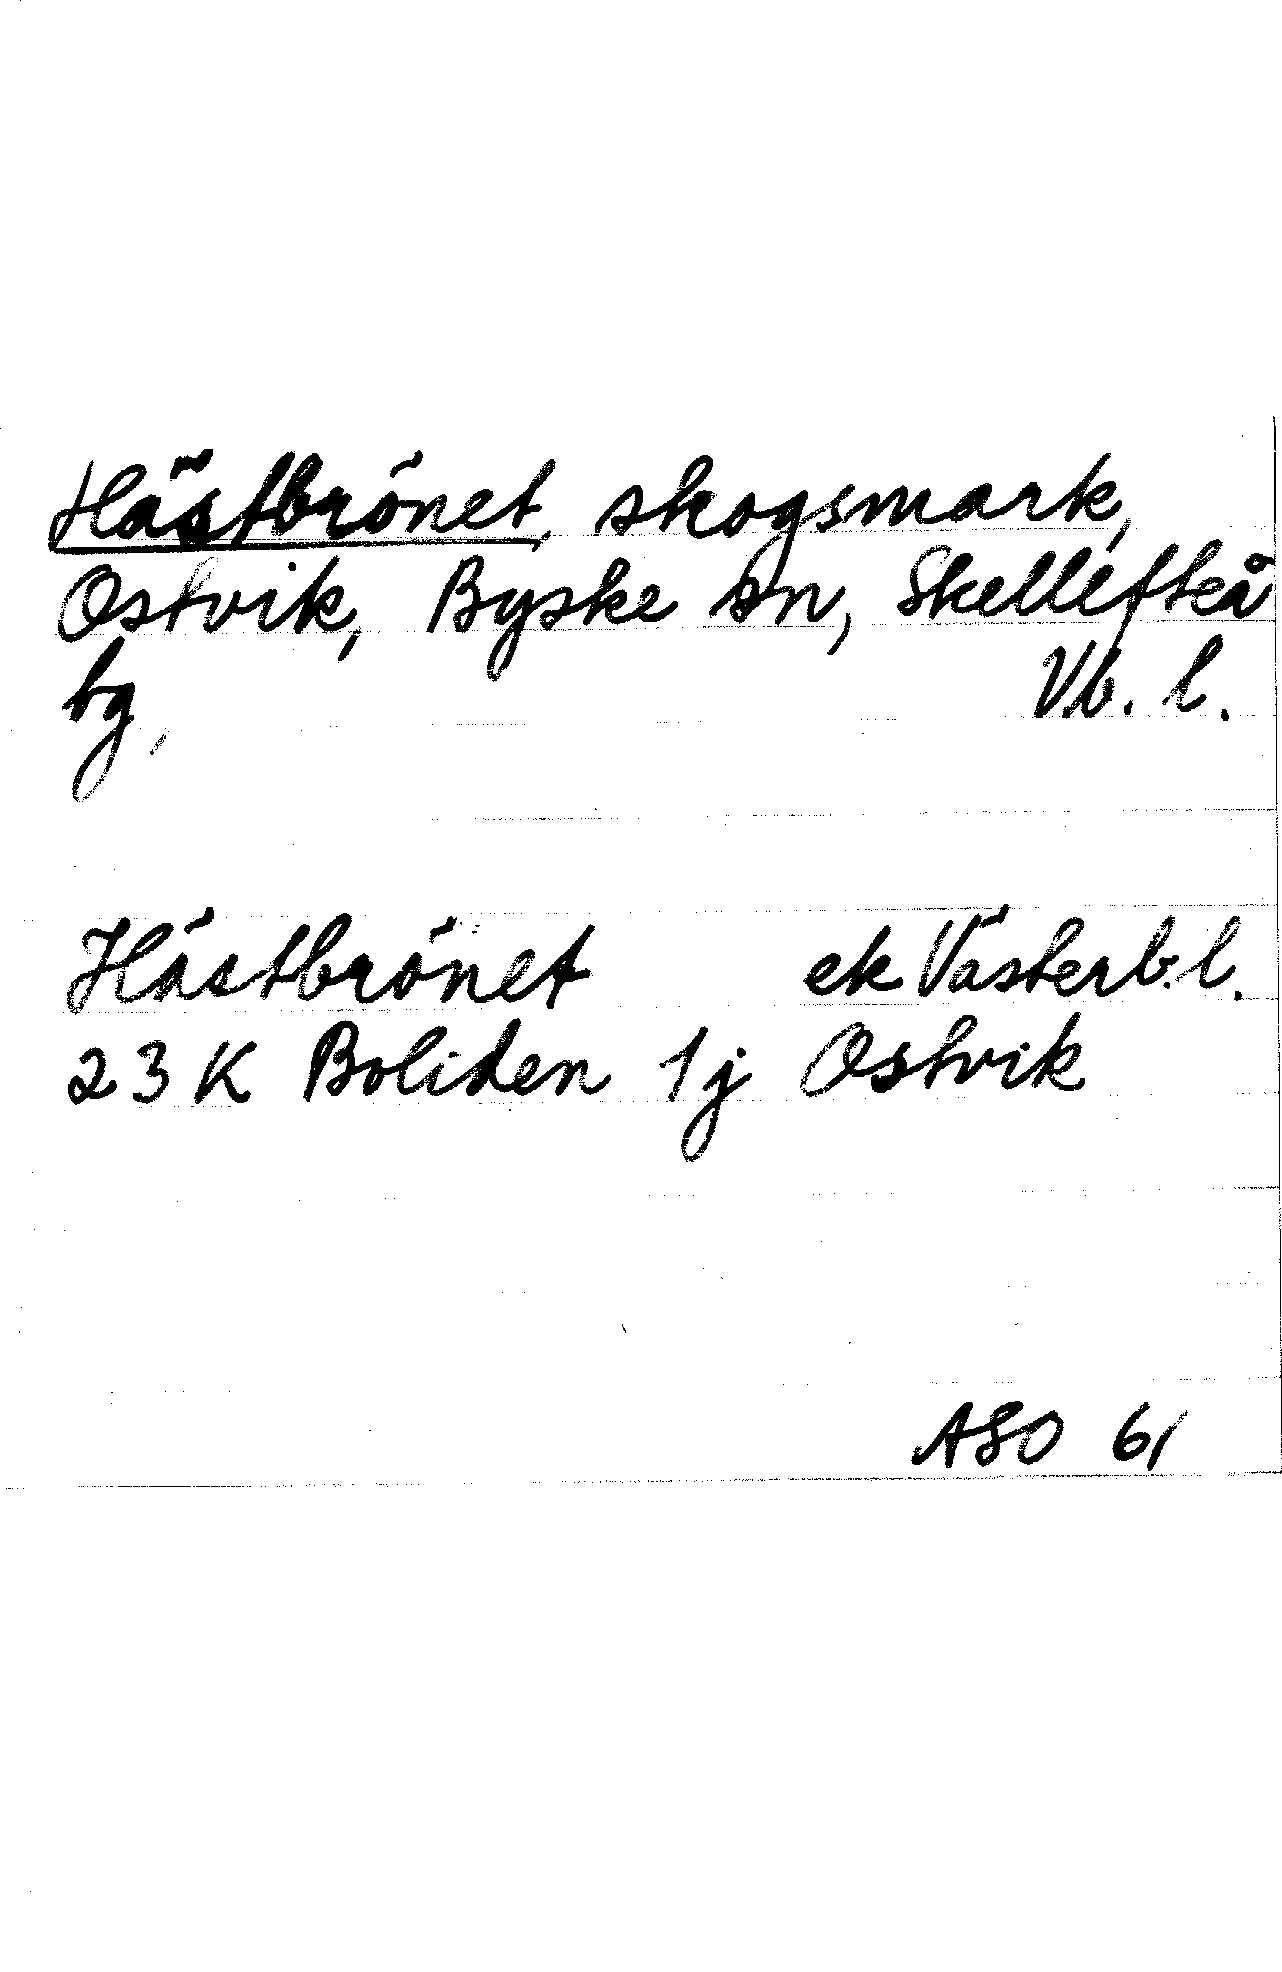 Hästbrönet, skogsmark,
Ostvik, Byske sn, Skellefteå
tg, Vb. l.
Hästbrönet ek Västerb. l.
23 K Boliden 1j Ostvik
ASO 61